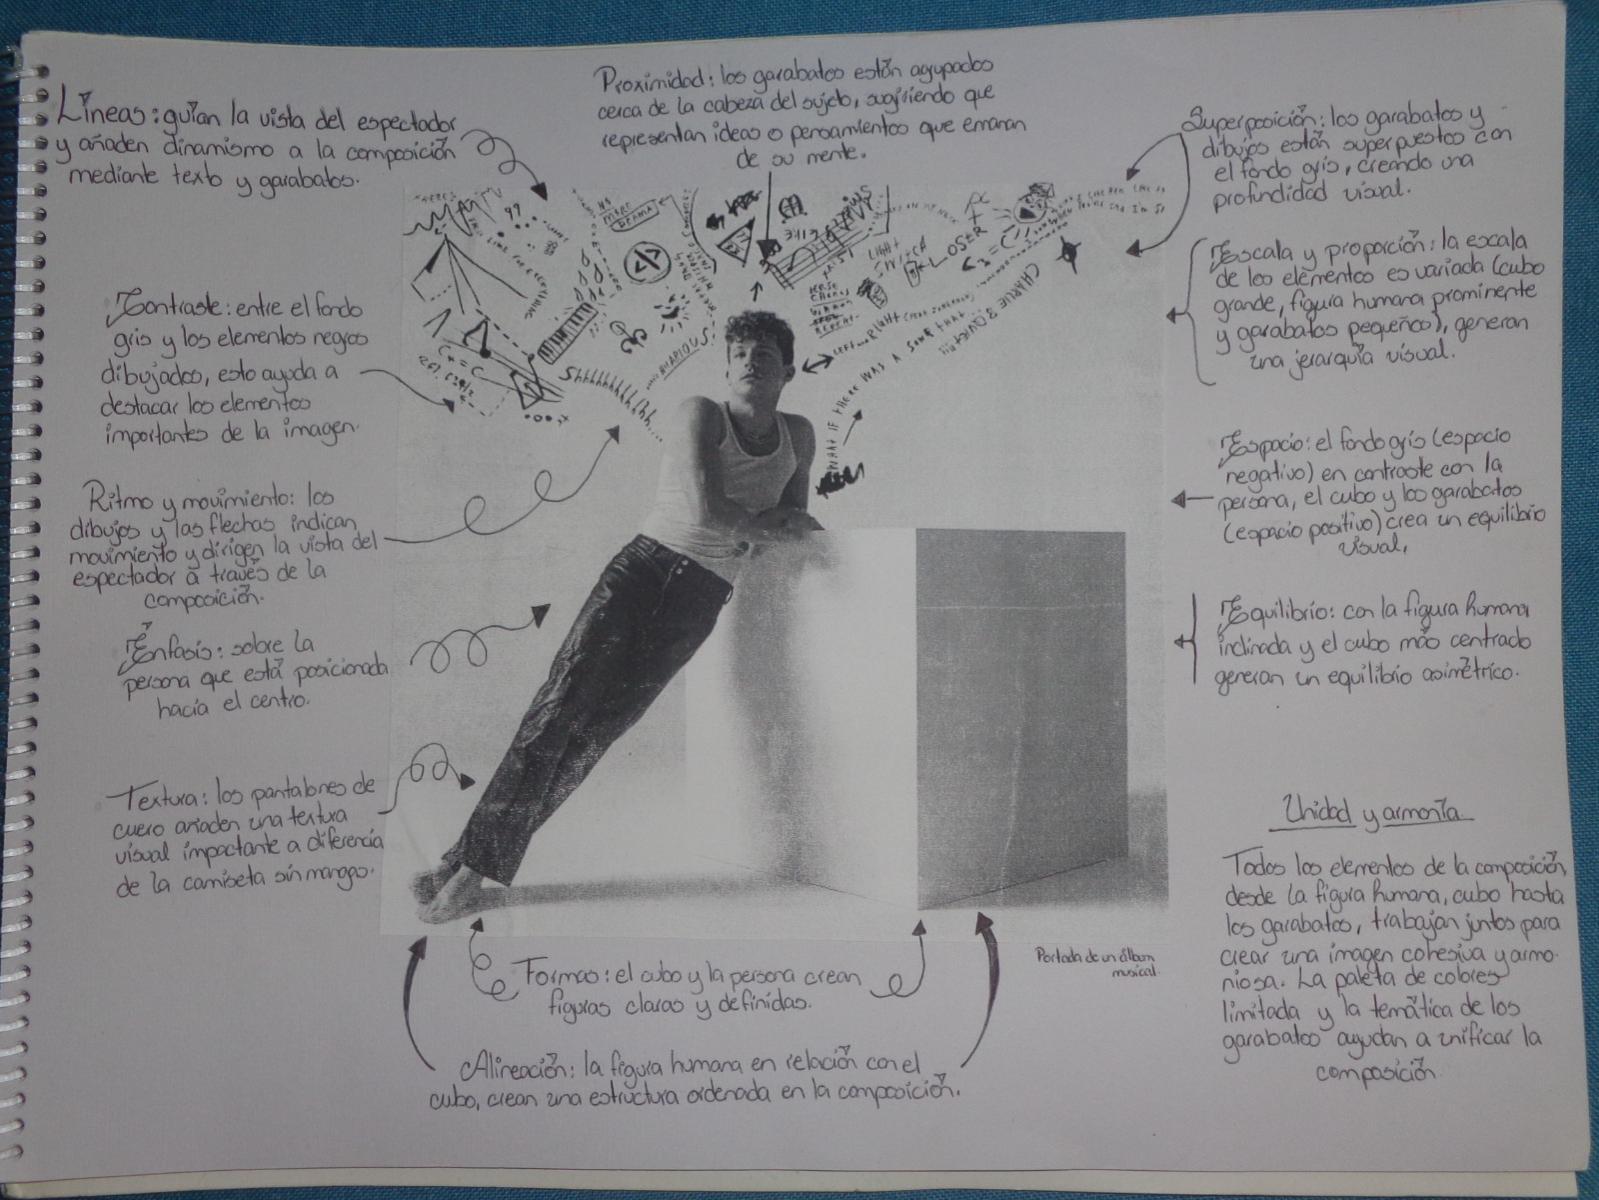 Líneas: guían la vista del espectador
y añaden dinamismo a la composición
mediante texto y garabatos.
Proximidad: los garabatos están agrupados
cerca de la cabeza del sujeto, sugiriendo que
representan ideas o pensamientos que emanan
de su mente.
Superposición: los garabatos y
dibujos están superpuestos con
el fondo gris, creando una
profundidad visual.
Contraste: entre el fondo
gris y los elementos negros
dibujados, esto ayuda a
destacar los elementos
importantes de la imagen.
Escala y proporción: la escala
de los elementos es variada (cubo
grande, figura humana prominente
y garabatos pequeños), generan
una jerarquía visual.
Ritmo y movimiento: los
dibujos y las flechas indican
movimiento y dirigen la vista del
espectador a través de la
composición.
Espacio: el fondo gris (espacio
negativo) en contraste con la
persona, el cubo y los garabatos
(espacio positivo) crea un equilibrio
visual.
Énfasis: sobre la
persona que está posicionada
hacia el centro.
Equilibrio: con la figura humana
inclinada y el cubo más centrado
generan un equilibrio asimétrico.
Textura: los pantalones de
cuero añaden una textura
visual impactante a diferencia
de la camiseta sin mangas.
Unidad y armonía
Todos los elementos de la composición,
desde la figura humana, cubo hasta
los garabatos, trabajan juntos para
crear una imagen cohesiva y armo-
niosa. La paleta de colores
limitada y la temática de los
garabatos ayudan a unificar la
composición.
Formas: el cubo y la persona crean
figuras claras y definidas.
Portada de un álbum
musical.
Alineación: la figura humana en relación con el
cubo, crean una estructura ordenada en la composición.
NO
MORE
DRAMA
99
LIGHT
SWITCH
LOSER
CHARLIE
LEFT AND RIGHT
WHAT IF THERE WAS A SONG THAT
Shhhhhhhhhh...
HILARIOUS!